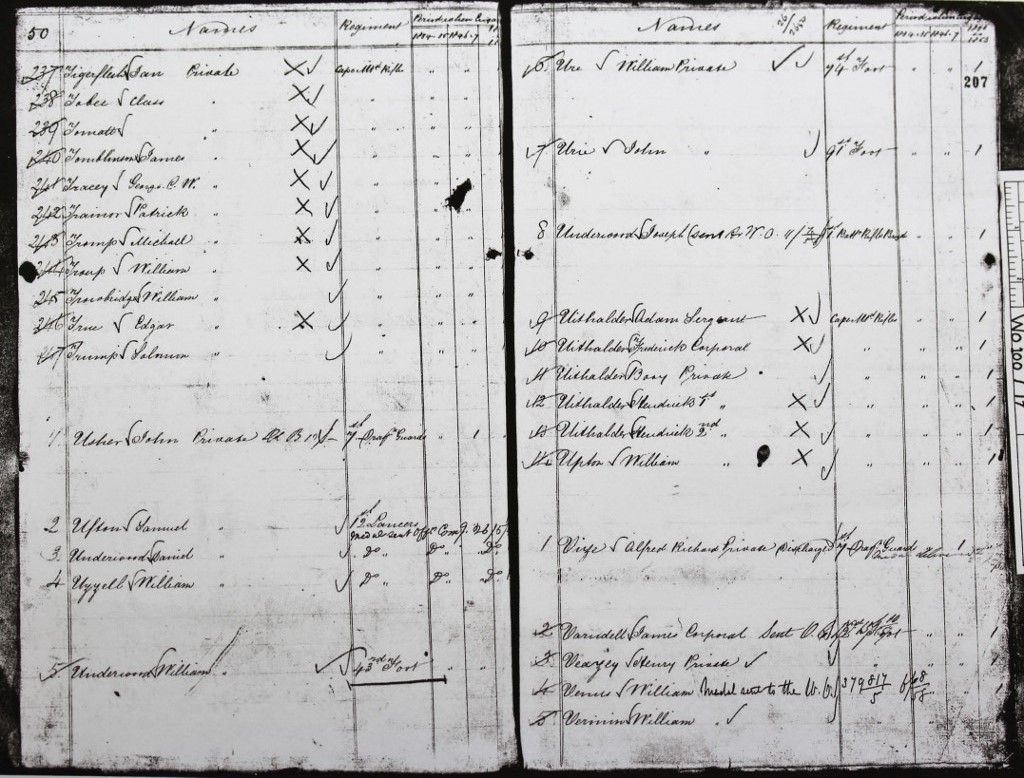 50 Names Regiment
237 Tigerflesh Jan Private Cape Mtd Rifles
238 Tobee Class "
239 Tomatt "
240 Tomblinson James
241 Tracey George C. W. "
242 Trainor Patrick "
243 Tromp Michall "
244 Troup William "
245 Trowbridge William "
246 True Edgar "
247 Trump Solomon "
1 Usher John Private 7 Drag Guards " 1
2 Ufton Samuel " 12 Lancers
medal sent Offr Comg
3 Underwood David " Do Do Do
4 Uzzell William " Do Do Do
5 Underwood William " 43rd Foot " "
Names Regiment
6 Ure William Private 74 Foot " " 1
207
7 Urie John " 91st Foot " " 1
8 Underwood Joseph (sent to W.O. 1
9 Uithalder Adam Sergeant Cape Mtd Rifles " " 1
10 Uithalder Frederick Corporal " " " 1
11 Uithalder Booy Private " " " 1
12 Uithalder Hendrick 1st " " " " 1
13 Uithalder Hendrick 2nd " " " " 1
14 Upton William " " " " 1
1 Alfred Richard Private Discharged 7 Drag Guards 1
2 Varndell James Corporal Sent " " 1
3 Veazey Henry Private " " " 1
4 Venus William Medal sent to the W.O. 379817/5 6/68/58 1
5 Vermin William " " " 1
WO 100 / 17